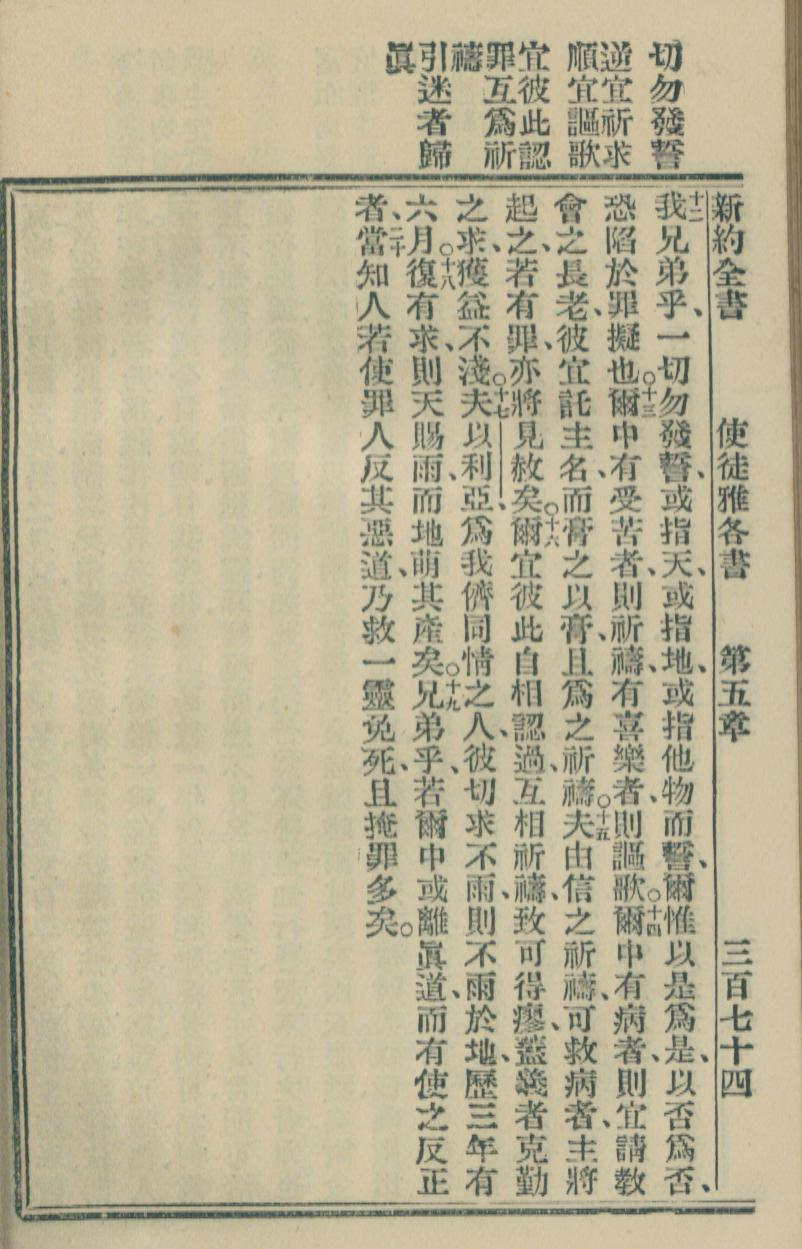 切勿發誓
逆宜祈求
順宜謳歌
宜彼此認
罪互爲祈
禱
引迷者歸
眞
新約全書 使徒雅各書 第五章 三百七十四
十二我兄弟乎、一切勿發誓、或指天、或指地、或指他物而誓、爾惟以是爲是、以否爲否、
恐陷於罪擬也○十三爾中有受苦者、則祈禱、有喜樂者、則謳歌○十四爾中有病者、則宜請教
會之長老、彼宜託主名、而膏之以膏、且爲之祈禱○十五夫由信之祈禱、可救病者、主將
起之、若有罪、亦將見赦矣○十六爾宜彼此自相認過、互相祈禱、致可得瘳、蓋義者克勤
之求、獲益不淺○十七夫以利亞、爲我儕同情之人、彼切求不雨、則不雨於地、歷三年有
六月○十八復有求、則天賜雨、而地萌其產矣○十九兄弟乎、若爾中或離眞道、而有使之反正
者、二十當知人若使罪人反其惡道、乃救一靈免死、且掩罪多矣○